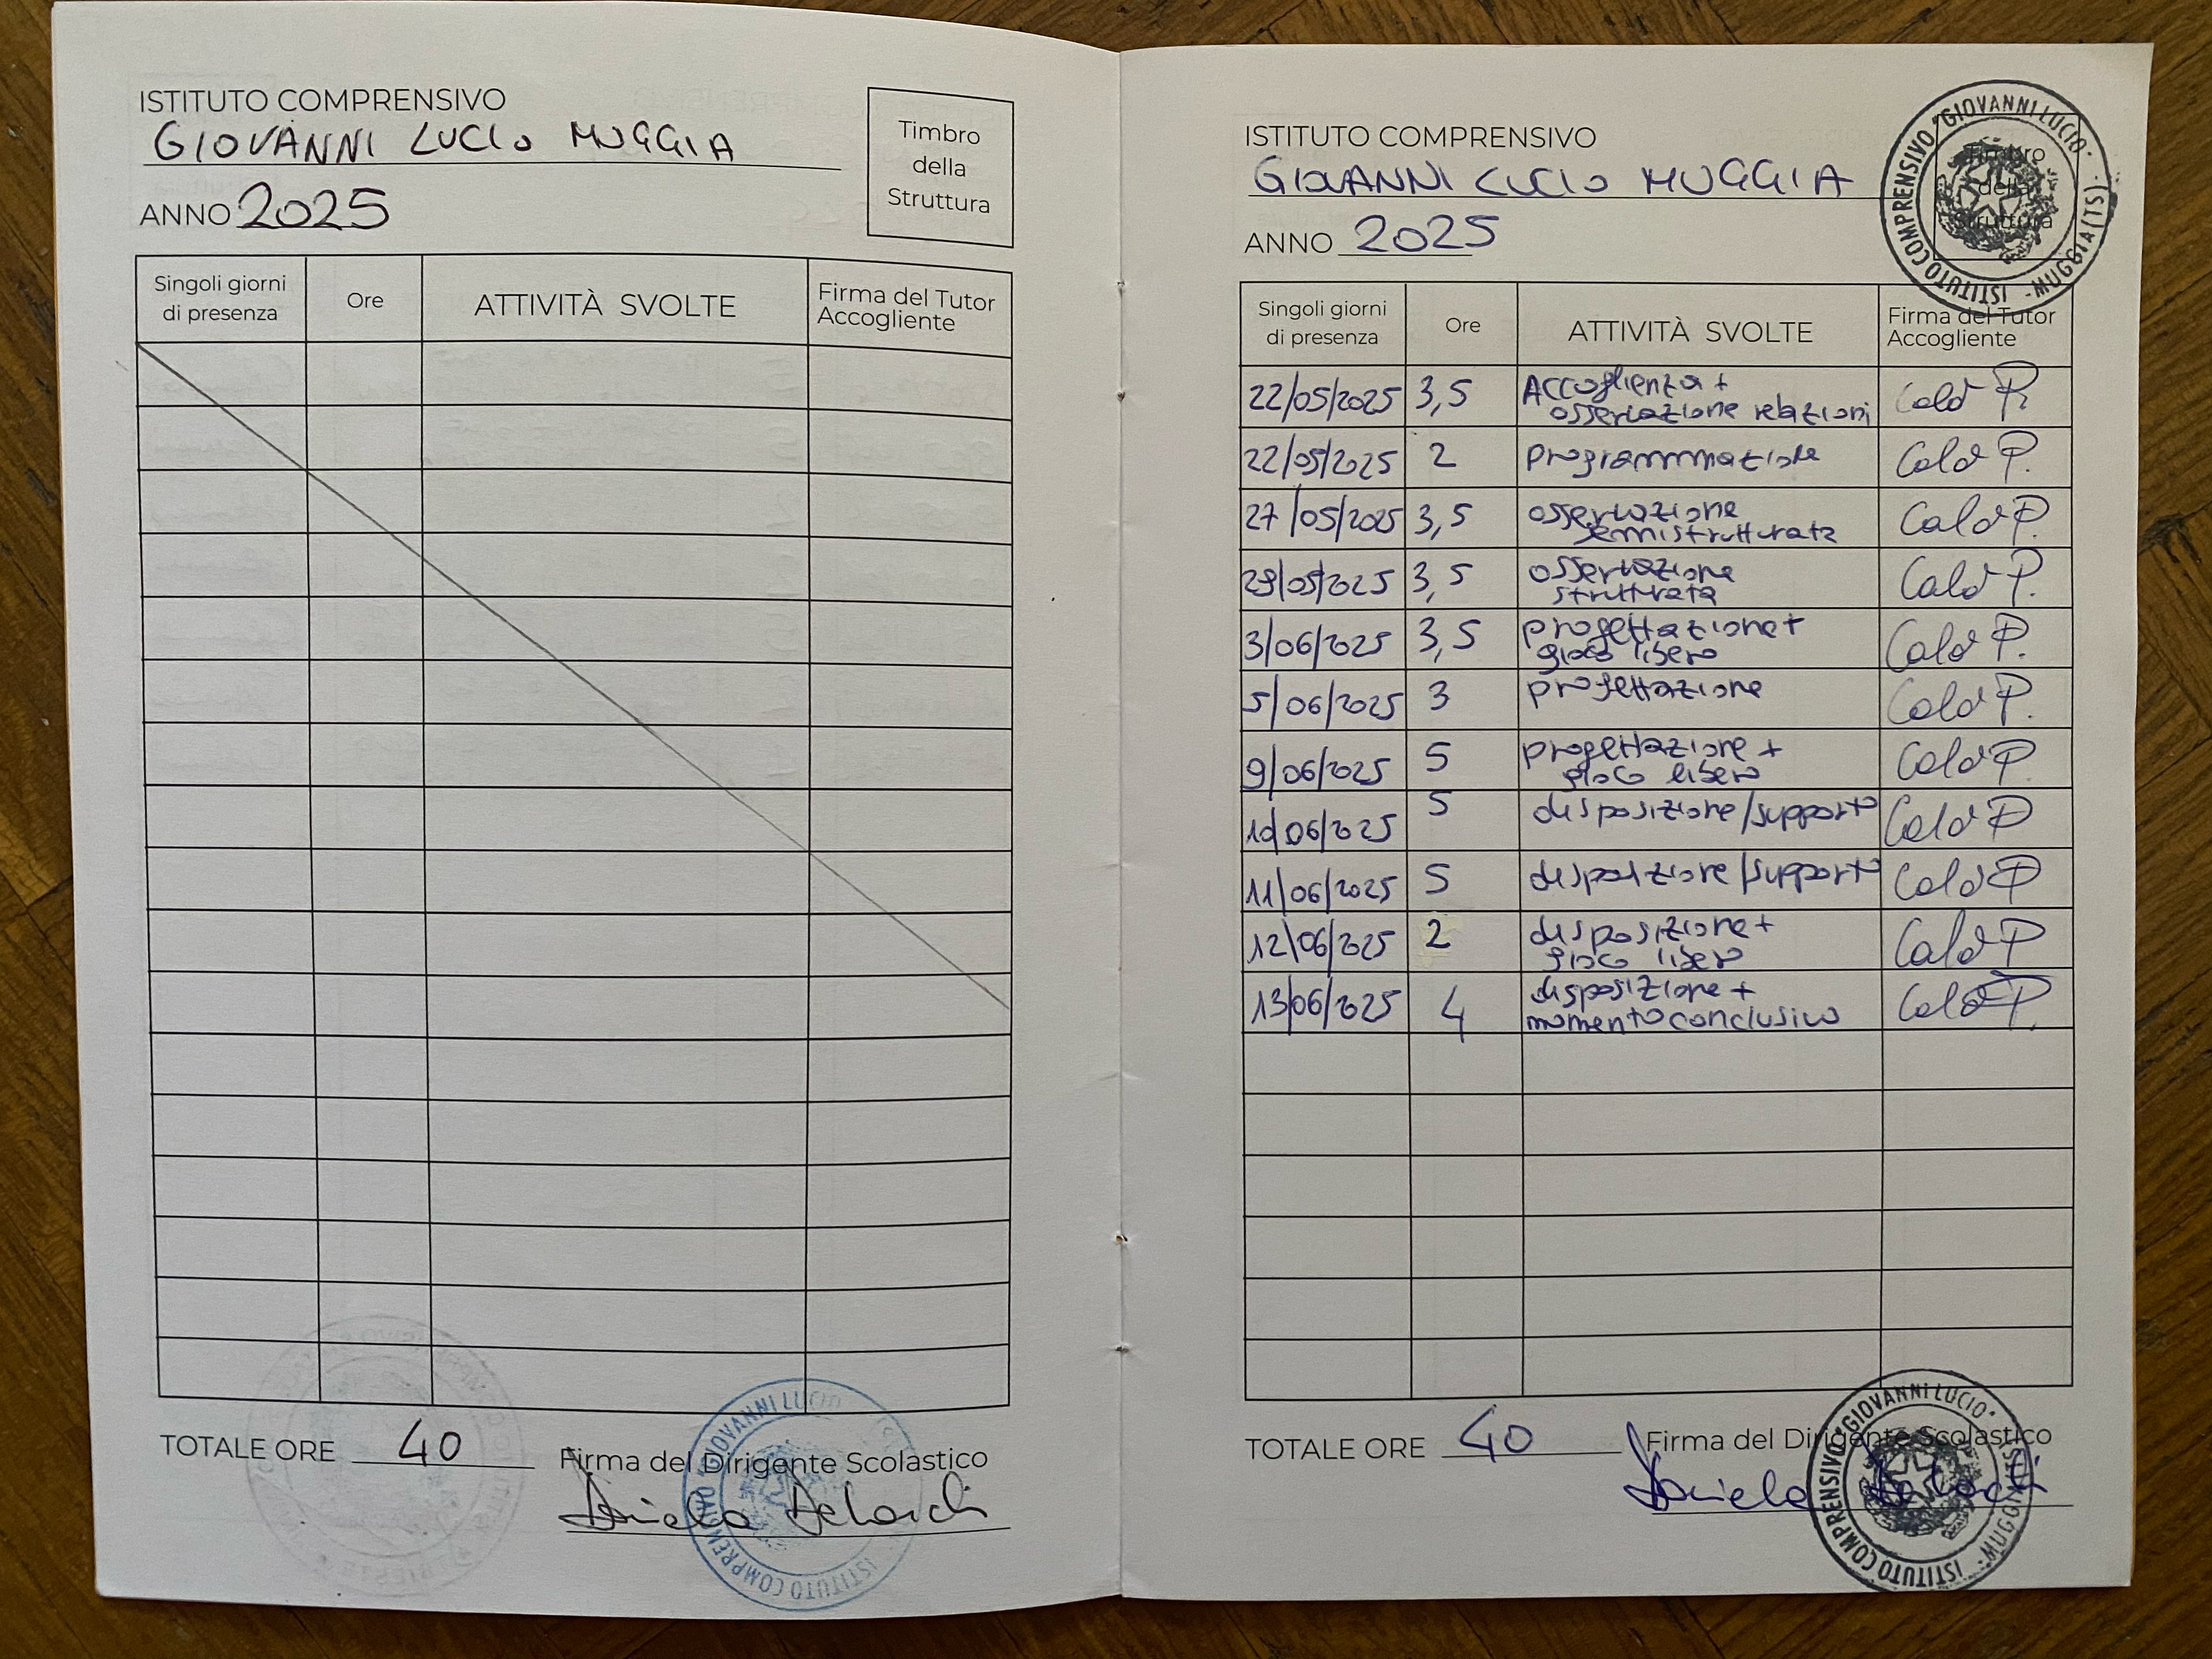 ISTITUTO COMPRENSIVO
GIOVANNI LUCIO MUGGIA
ANNO 2025
Timbro
della
Struttura
Singoli giorni
di presenza
Ore
ATTIVITÀ SVOLTE
Firma del Tutor
Accogliente
TOTALE ORE 40
Firma del Dirigente Scolastico
ISTITUTO COMPRENSIVO "GIOVANNI LUCIO"
ISTITUTO COMPRENSIVO
GIOVANNI LUCIO MUGGIA
ANNO 2025
Timbro
della
Struttura
ISTITUTO COMPRENSIVO "GIOVANNI LUCIO" - MUGGIA (TS) -
Singoli giorni
di presenza
Ore
ATTIVITÀ SVOLTE
Firma del Tutor
Accogliente
22/05/2025 3,5 Accoglienza +
osservazione relazioni
22/05/2025 2 programmazione
27/05/2025 3,5 osservazione
semistrutturata
29/05/2025 3,5 osservazione
strutturata
3/06/2025 3,5 progettazione +
gioco libero
5/06/2025 3 progettazione
9/06/2025 5 progettazione +
gioco libero
10/06/2025 5 disposizione/supporto
11/06/2025 5 disposizione/supporto
12/06/2025 2 disposizione +
gioco libero
13/06/2025 4 disposizione +
momento conclusivo
TOTALE ORE 40
Firma del Dirigente Scolastico
ISTITUTO COMPRENSIVO "GIOVANNI LUCIO"